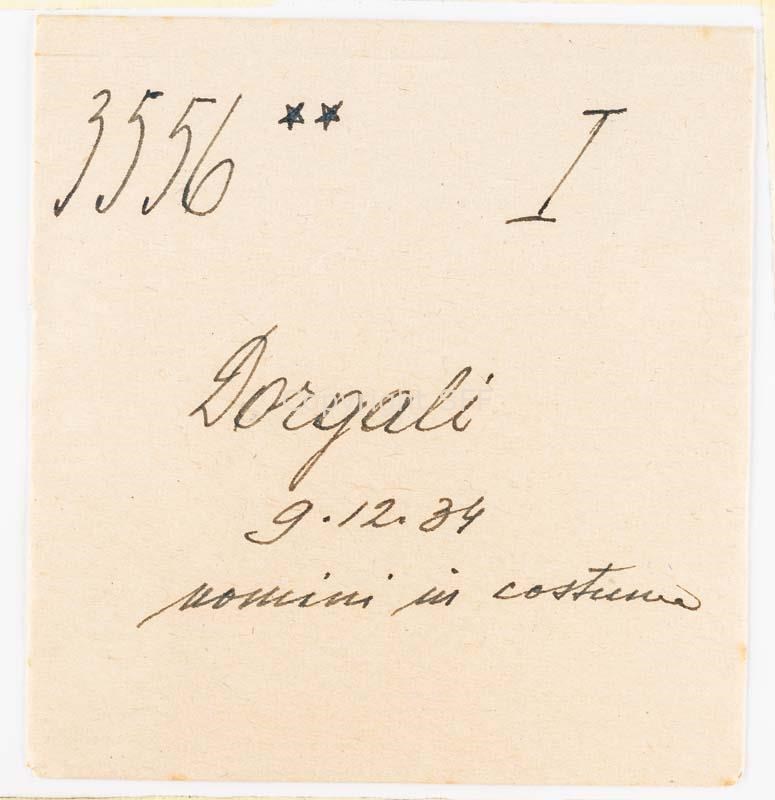 3556 ** I
Dorgali
9.12.34
uomini in costume